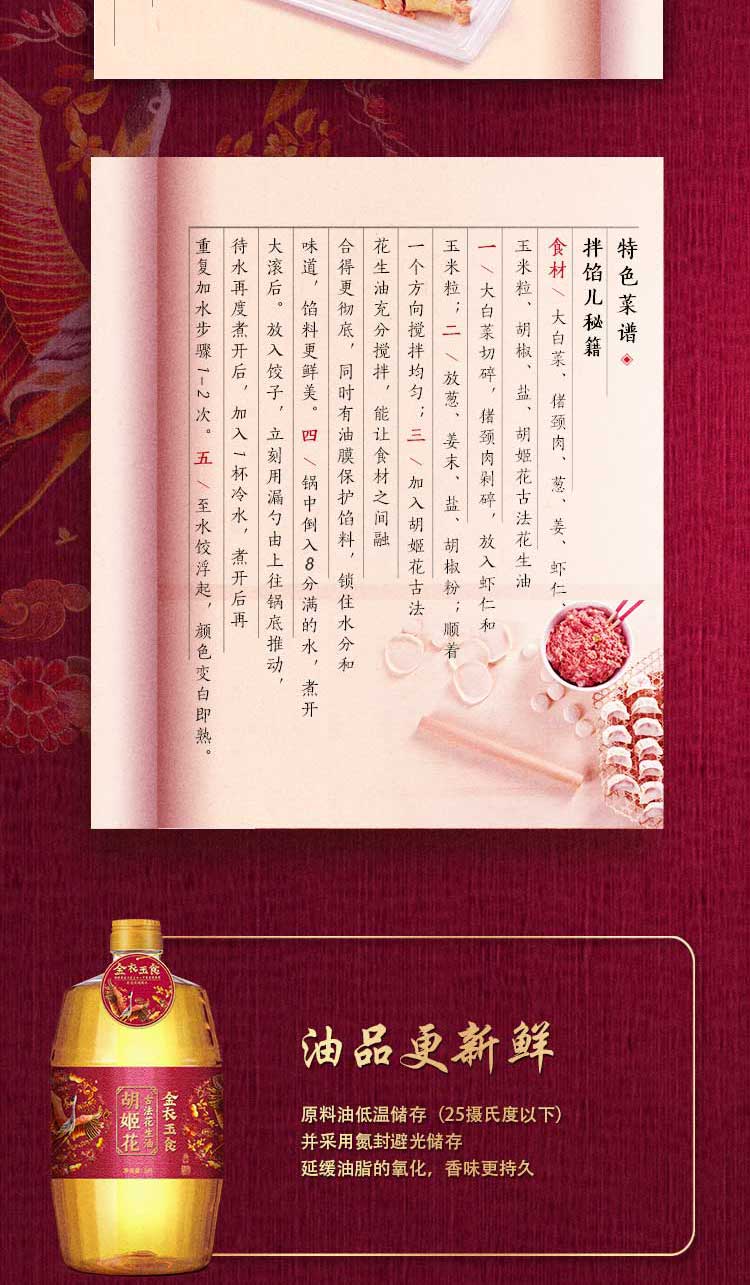 特色菜谱
拌馅儿秘籍
食材／大白菜、猪颈肉、葱、姜、虾仁、
玉米粒、胡椒、盐、胡姬花古法花生油
一／大白菜切碎，猪颈肉剁碎，放入虾仁和
玉米粒；二／放葱、姜末、盐、胡椒粉；顺着
一个方向搅拌均匀；三／加入胡姬花古法
花生油充分搅拌，能让食材之间融
合得更彻底，同时有油膜保护馅料，锁住水分和
味道，馅料更鲜美。四／锅中倒入8分满的水，煮开
大滚后。放入饺子，立刻用漏勺由上往锅底推动，
待水再度煮开后，加入1杯冷水，煮开后再
重复加水步骤1-2次。五／至水饺浮起，颜色变白即熟。
金衣玉食
金衣玉食
古法花生油
胡姬花
油品更新鲜
原料油低温储存（25摄氏度以下）
并采用氮封避光储存
延缓油脂的氧化，香味更持久